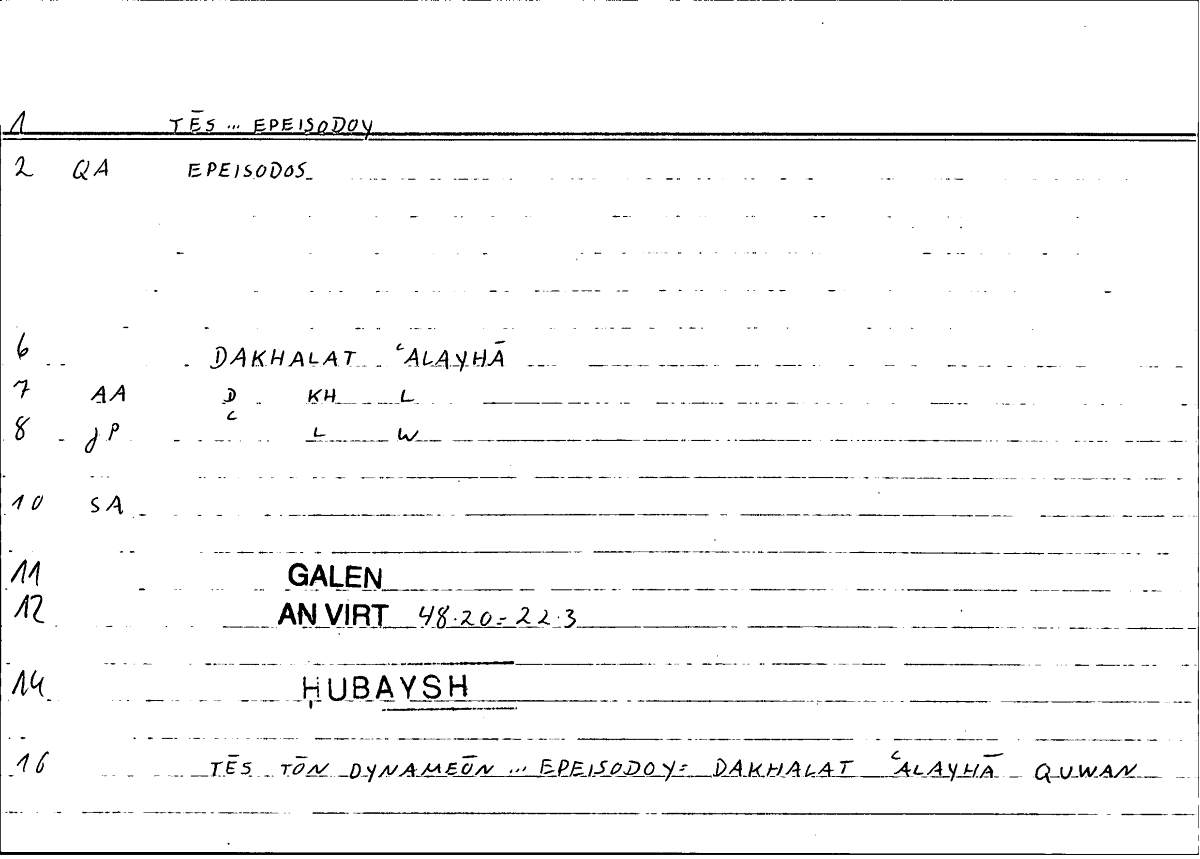 1 TĒS ... EPEISODOY
2 QA EPEISODOS
6 DAKHALAT ʿALAYHĀ
7 AA D KH L
8 JP ʿ L W
10 SA
11 GALEN
12 AN VIRT 48.20=22.3
14 ḤUBAYSH
16 TĒS TŌN DYNAMEŌN ... EPEISODOY= DAKHALAT ʿALAYHĀ QUWAN